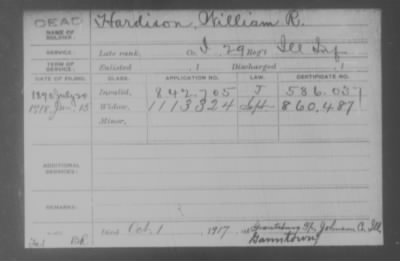 DEAD
NAME OF SOLDIER: Hardison, William R.
SERVICE: Late rank, Co. I, 29 Reg't Ill Inf
TERM OF SERVICE: Enlisted , 1 Discharged , 1
DATE OF FILING. CLASS. APPLICATION NO. LAW. CERTIFICATE NO.
1890 July 20 Invalid, 842.705 J 586.037
1918 Jan. 15 Widow, 1113324 Sept. 860.487
Minor,
ADDITIONAL SERVICES:
REMARKS:
Died Oct. 1, 1917, at Johnson Co. Ill.